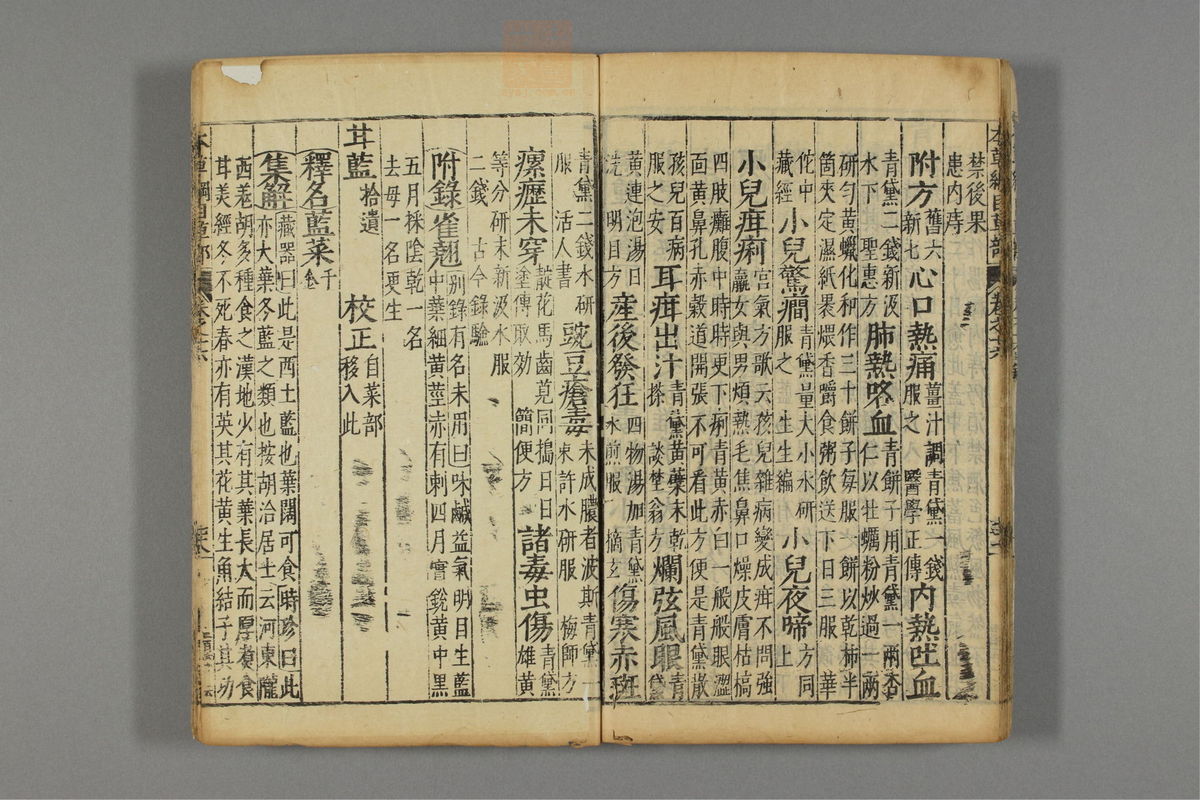 本草綱目草部 卷之十六
禁後果
患內痔
附方 舊六 新七 心口熱痛 薑汁調青黛一錢 服之 醫學正傳 內熱吐血
青黛二錢新汲
水下 聖惠方 肺熱咯血 青餅子用青黛一兩杏
仁以牡蠣粉炒過一兩
研勻黃蠟化和作三十餅子每服一餅以乾柿半
箇夾定濕紙裹煨香嚼食粥飲送下日三服 華
佗中
藏經 小兒驚癇 青黛量大小水研
服之 生生編 小兒夜啼 方同
上
小兒疳痢 宮氣方歌云孩兒雜病變成疳不問強
羸女與男煩熱毛焦鼻口燥皮膚枯槁
四肢癱腹中時時更下痢青黃赤白一般般眼澀
面黃鼻孔赤穀道開張不可看此方便是青黛散
孩兒百病
服之安 耳疳出汁 青黛黃蘗末乾
搽 談埜翁方 爛弦風眼 青
黛
黃連泡湯日
洗 明目方 產後發狂 四物湯加青黛
水煎服 摘玄 傷寒赤斑
青黛二錢水研
服 活人書 豌豆瘡毒 未成膿者波斯青黛一
棗許水研服 梅師方
瘰癧未穿 靛花馬齒莧同搗日日
塗傅取效 簡便方 諸毒虫傷 青黛
雄黃
等分研末新汲水服
二錢 古今錄驗
附錄雀翹 別錄有名未用曰味鹹益氣明目生藍
中葉細黃莖赤有刺四月實銳黃中黑
五月採陰乾一名
去母一名更生
甘藍 拾遺 校正 自菜部
移入此
釋名藍菜 千金
集解 藏器曰此是西土藍也葉闊可食時珍曰此
亦大葉冬藍之類也按胡洽居士云河東隴
西羌胡多種食之漢地少有其葉長大而厚煮食
甘美經冬不死春亦有英其花黃生角結子其功
本草綱目草部 卷之十六